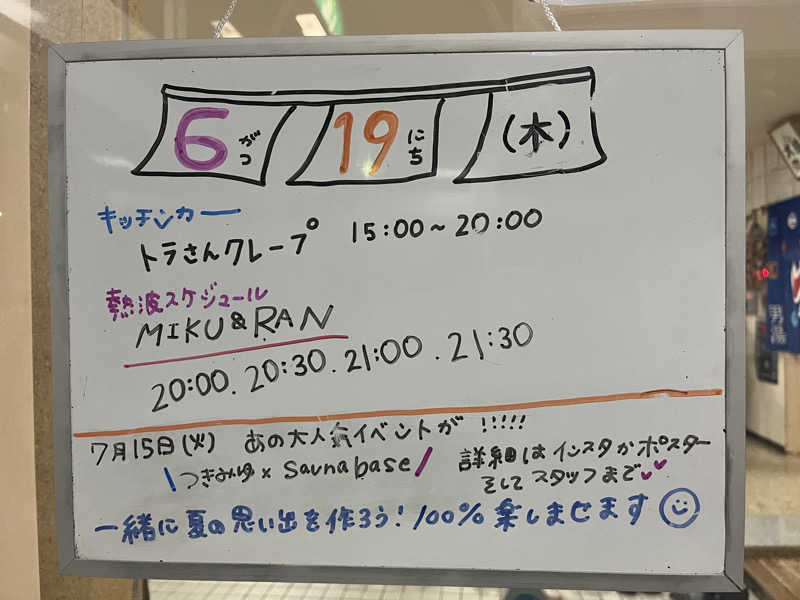 6がつ 19にち (木)
キッチンカー
トラさんクレープ 15:00~20:00
熱波スケジュール
MIKU&RAN
20:00. 20:30. 21:00. 21:30
7月15日(火) あの大人気イベントが !!!!!
\つきみゆ × Saunabase/
詳細はインスタかポスター
そしてスタッフまで
一緒に夏の思い出を作ろう!100%楽しませます
男湯